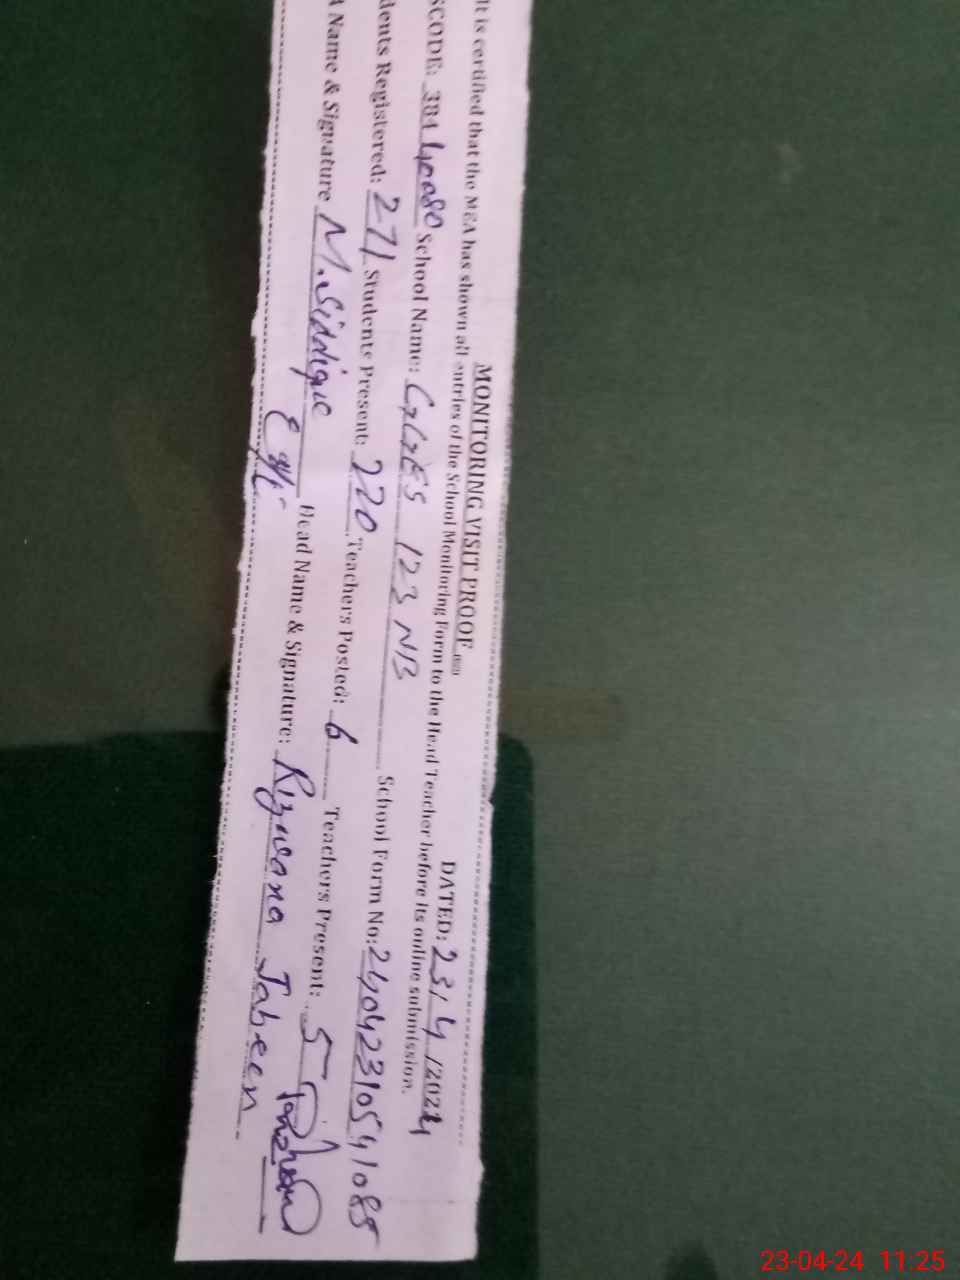 MONITORING VISIT PROOF DATED: 23/4/2024
It is certified that the MEA has shown all entries of the School Monitoring Form to the Head Teacher before its online submission.
SCODE: 38440080 School Name: GGES 123 NB School Form No: 24042310541085
dents Registered: 271 Students Present: 220 Teachers Posted: 6 Teachers Present: 5
Name & Signature M. Siddique Head Name & Signature: Rizwana Jabeen
23-04-24 11:25